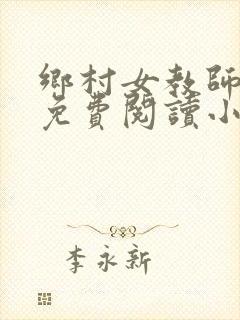 鄉村女教師
免費閱讀小
李永新